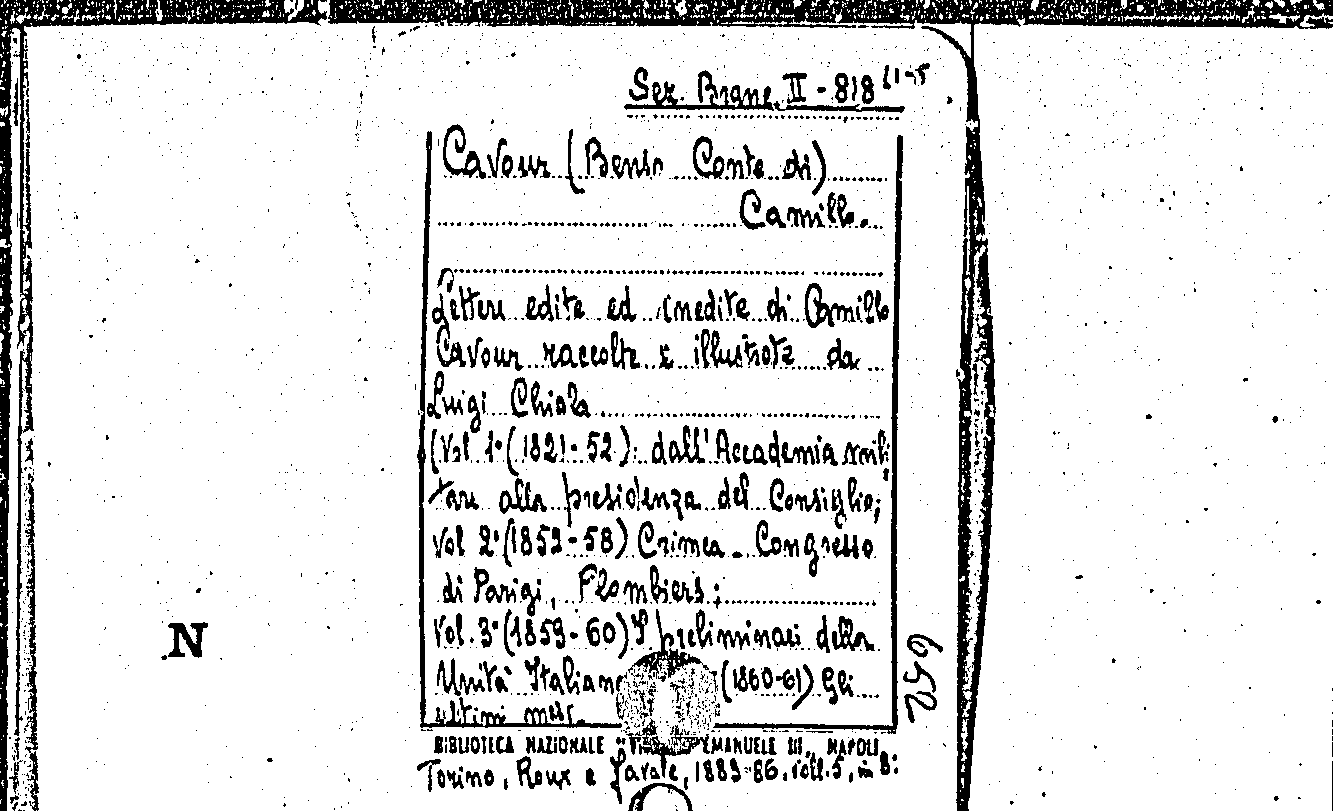 Sez. Branc. II - 818 (1-5
Cavour (Benso Conte di)
Camillo.
Lettere edite ed inedite di Camillo
Cavour raccolte e illustrate da
Luigi Chiala
(Vol 1° (1821-52): dall'Accademia mili
tare alla presidenza del Consiglio;
Vol 2° (1852-58) Crimea - Congresso
di Parigi, Plombiers;
Vol. 3° (1859-60) I preliminari della
Unità Italiana (1860-61) Gli
ultimi mesi.
N
BIBLIOTECA NAZIONALE EMANUELE III, NAPOLI
Torino, Roux e Favale, 1883-86. voll. 5, in 8: